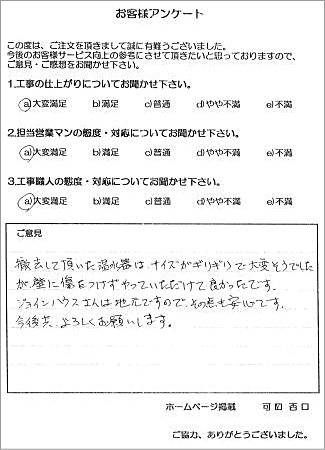 お客様アンケート
この度は、ご注文を頂きまして誠に有難うございました。
今後のお客様サービス向上の参考にさせて頂きたいと思っておりますので、
ご意見・ご感想をお聞かせ下さい。
1.工事の仕上がりについてお聞かせ下さい。
a)大変満足 b)満足 c)普通 d)やや不満 e)不満
2.担当営業マンの態度・対応についてお聞かせ下さい。
a)大変満足 b)満足 c)普通 d)やや不満 e)不満
3.工事職人の態度・対応についてお聞かせ下さい。
a)大変満足 b)満足 c)普通 d)やや不満 e)不満
ご意見
撤去して頂いた温水器は、サイズがギリギリで大変そうでした
が、壁に傷をつけずやっていただけて良かったです。
ジョインハウスさんは地元ですので、その点も安心です。
今後共、よろしくお願いします。
ホームページ掲載 可 否
ご協力、ありがとうございました。